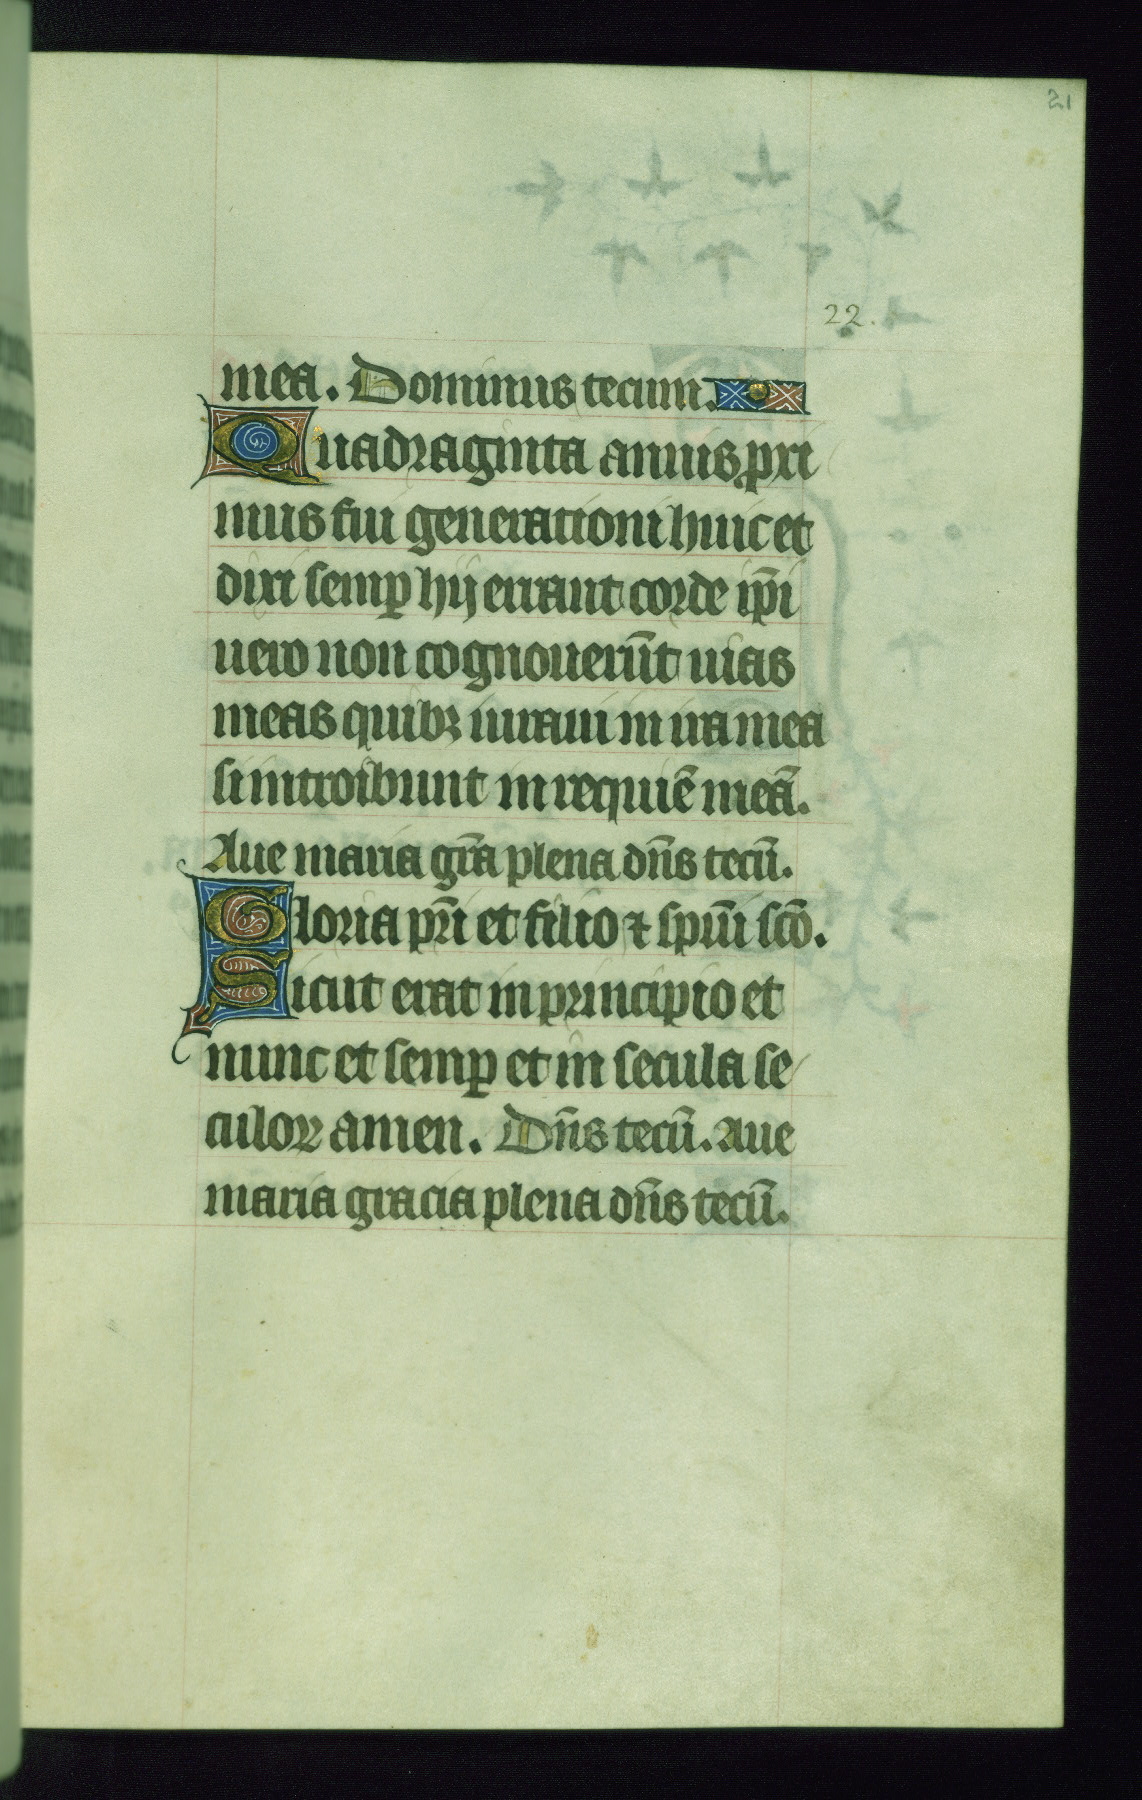 21
22.
mea. Dominus tecum.
Quadraginta annis pxi
mus fui generationi huic et
dixi semꝑ hij errant corde ip̄i
uero non cognouerūt uias
meas quibꝫ iuraui in ira mea
si introibunt in requiē meā.
Aue maria gr̄a plena dn̄s tecū.
Gloria pr̄i et filio ⁊ spūi scō.
Sicut erat in principio et
nunc et semꝑ et in secula se
culoꝝ amen. Dn̄s tecū. Aue
maria gracia plena dn̄s tecū.